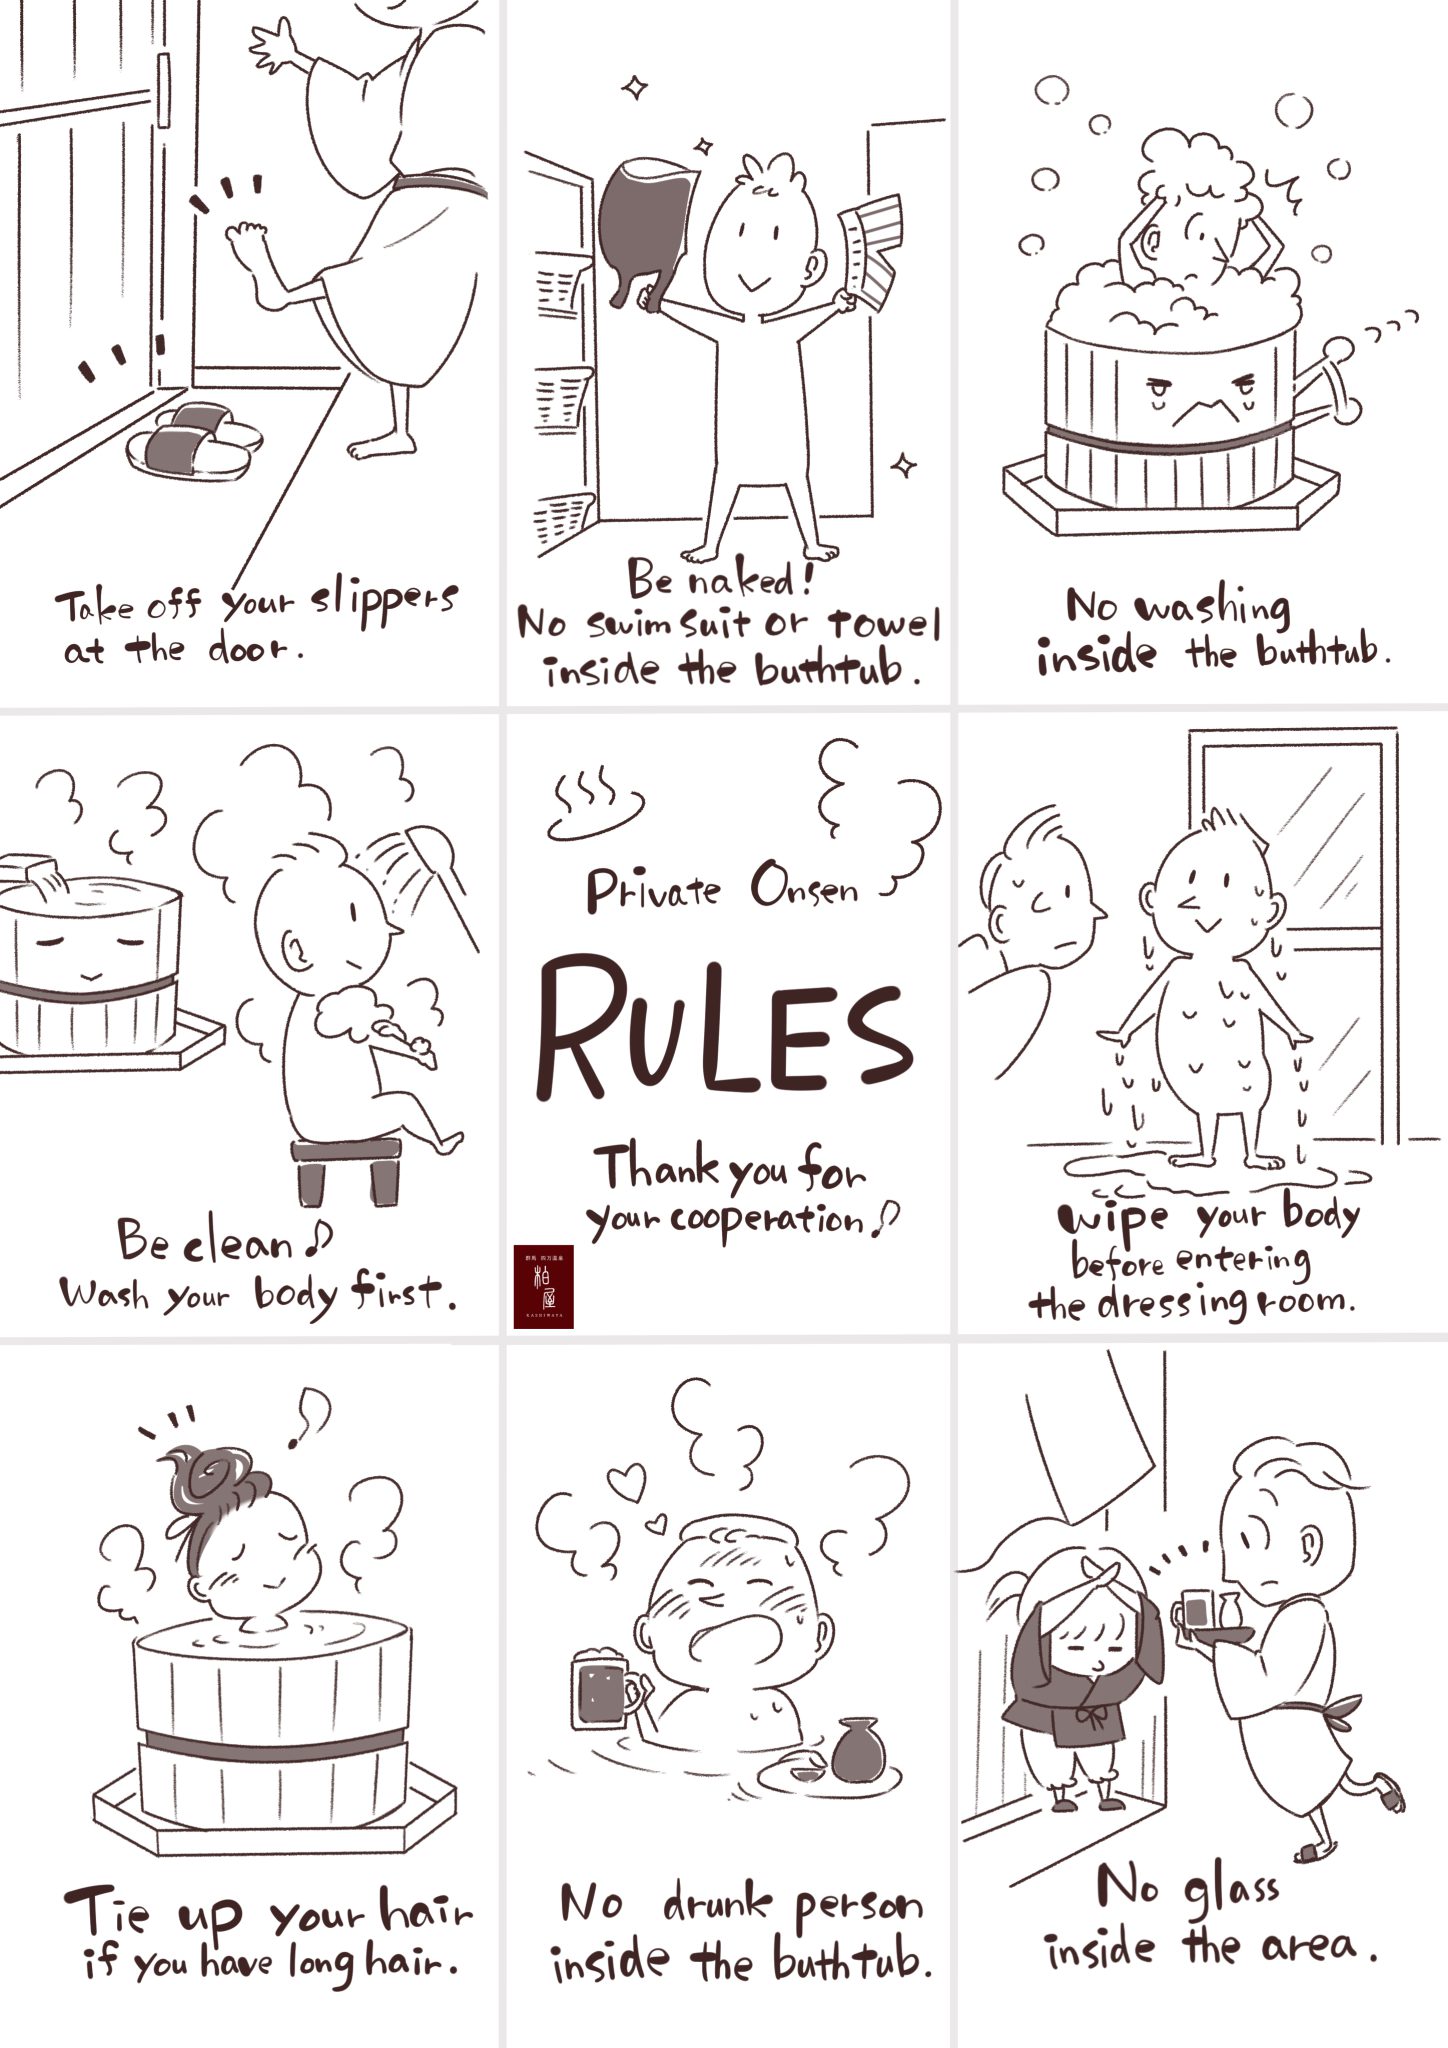 Take off your slippers
at the door.
Be naked!
No swim suit or towel
inside the buthtub.
No washing
inside the buthtub.
Be clean♪
Wash your body first.
Private Onsen
RULES
Thank you for
your cooperation♪
群馬 四万温泉
柏屋
KASHIWAYA
wipe your body
before entering
the dressing room.
Tie up your hair
if you have long hair.
No drunk person
inside the buthtub.
No glass
inside the area.